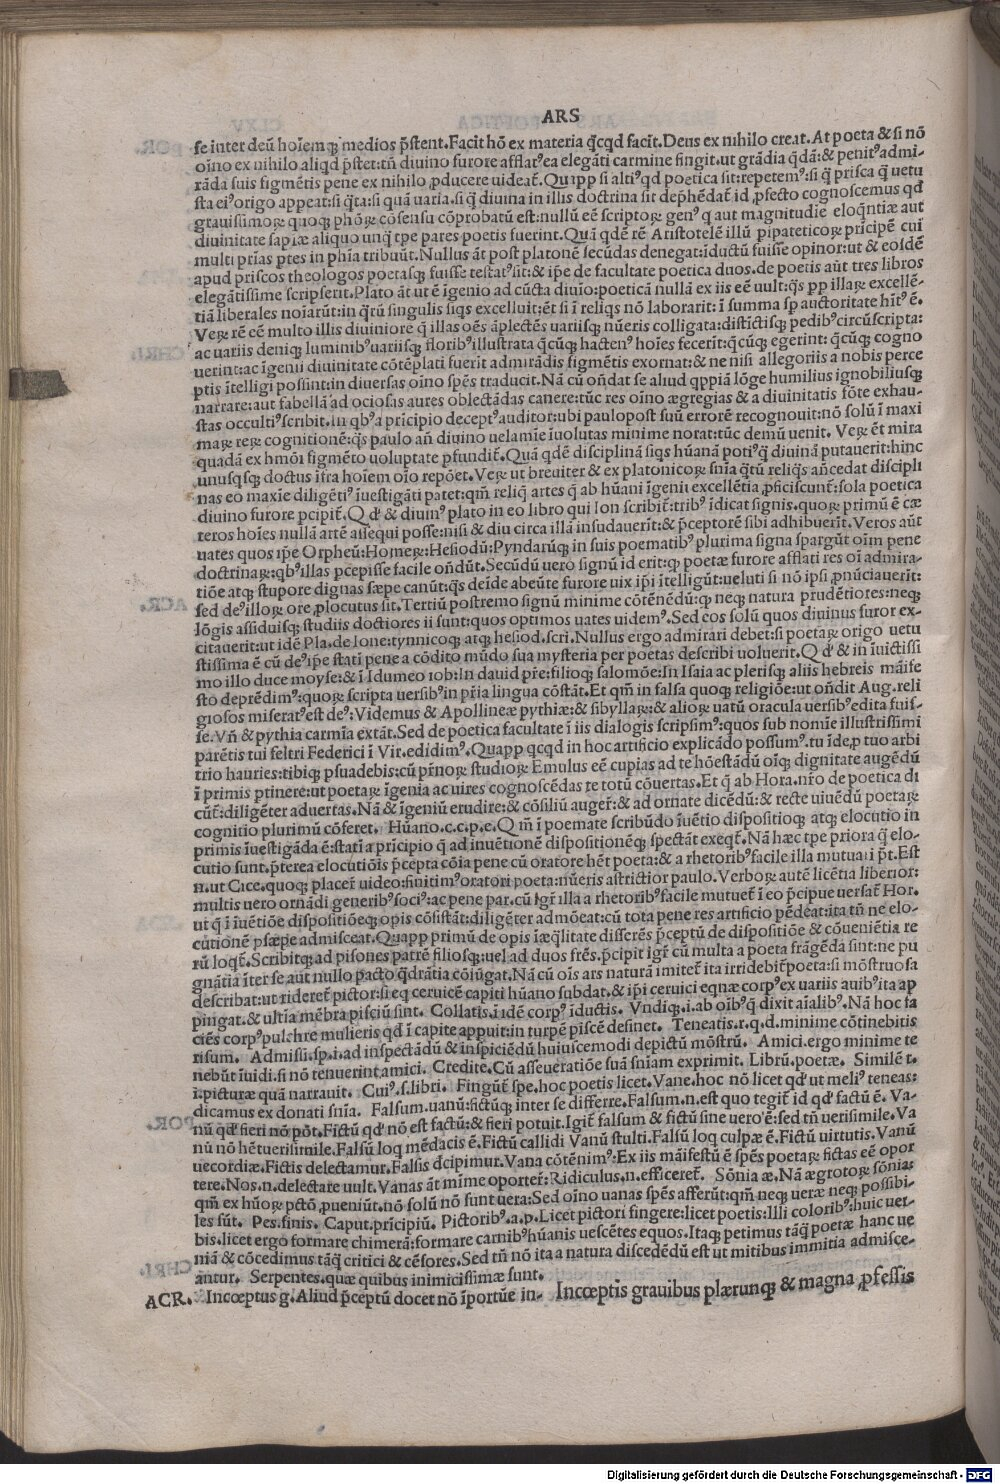 ARS
se inter deū hoīemq; medios p̄stent. Facit hō ex materia q̄cqd facit. Deus ex nihilo creat. At poeta & si nō
oīno ex nihilo aliqd p̄stet: tn̄ diuino furore afflatꝰ ea elegāti carmine fingit. ut grādia q̄dā: & penitꝰ admi-
rāda suis figmētis pene ex nihilo ꝓducere uideat̄. Quapp si altiꝰ qd poetica sit: repetemꝰ: si q̄ prisca q̄ uetu
sta eiꝰ origo appeat: si q̄ta: si quā uaria. si q̄ diuina in illis doctrina sit dep̄hēdat̄ id ꝓfecto cognoscemus qd
grauissimoꝝ quoq; phōꝝ cōsensu cōprobatū est: nullū eē scriptoꝝ genꝰ q aut magnitudīe eloq̄ntiæ aut
diuinitate sapīæ aliquo unq̄ tpe pares poetis fuerint. Quā qdē rē Aristotelē illū pipateticoꝝ pricipē cui
multi prīas ptes in phīa tribuūt. Nullus āt post platonē secūdas denegat: īductū fuisse opinor: ut & eosdē
apud priscos theologos poetasq; fuisse testatꝰ sit: & ip̄e de facultate poetica duos. de poetis aūt tres libros
elegātissime scripserit. Plato āt ut ē īgenio ad cūcta diuīo: poeticā nullā ex iis eē uult: q̄s pp illaꝝ excellē-
tiā liberales noīarūt: in q̄rū singulis siqs excelluit: ēt si ī reliqs nō laborarit: ī summa sp auctoritate hīt̄ꝰ ē.
Veꝝ rē eē multo illis diuiniorē q̄ illas oēs āplectēs uariisq; nūeris colligata: distīctisq; pedibꝰ circūscripta:
ac uariis deniq; luminibꝰ uariisq; floribꝰ illustrata q̄cūq; hactenꝰ hoīes fecerit: q̄cūq; egerint: q̄cūq; cogno
uerint: ac īgenii diuinitate cōtēplati fuerit admirādis figmētis exornat: & ne nisi allegoriis a nobis perce
ptis ītelligi possint: in diuersas oīno spēs traducit. Nā cū on̄dat se aliud qppiā lōge humilius ignobiliusq;
narrare: aut fabellā ad ociosas aures oblectādas canere: tūc res oīno ægregias & a diuinitatis fōte exhau-
stas occultiꝰ scribit. in qbꝰ a pricipio deceptꝰ auditor: ubi paulopost suū errorē recognouit: nō solū ī maxi
maꝝ reꝝ cognitionē: q̄s paulo an̄ diuino uelamīe īuolutas minime norat: tūc demū uenit. Veꝝ ēt mira
quadā ex hmōi figmēto uoluptate pfundit̄. Quā qdē disciplinā siqs hūanā potiꝰ q̄ diuinā putauerit: hinc
unusqsq; doctus īfra hoīem oīo repōet. Veꝝ ut breuiter & ex platonicoꝝ sn̄īa q̄tū reliqs an̄cedat discipli
nas eo maxīe diligētiꝰ īuestigāti patet: qm̄ reliq̄ artes q̄ ab hūani īgenii excellētia ꝓficiscunt̄: sola poetica
diuino furore pcipit̄. Q d̄ & diuinꝰ plato in eo libro qui Ion scribit̄: tribꝰ īdicat signis. quoꝝ primū ē cæ
teros hoīes nullā artē assequi posse: nisi & diu circa illā insudauerīt: & p̄ceptorē sibi adhibuerīt. Veros aūt
uates quos ip̄e Orpheū: Homeꝝ: Hesiodū: Pyndarūq; in suis poematibꝰ plurima signa spargūt oīm pene
doctrinaꝝ: qbꝰ illas pcepisse facile on̄dūt. Secūdū uero signū id erit: q poetæ furore afflati res oī admira-
tiōe atq; stupore dignas sæpe canūt: q̄s deīde abeūte furore uix ip̄i ītelligūt: ueluti si nō ipsi ꝓnūciauerīt:
sed deꝰ illoꝝ ore ꝓlocutus sit. Tertiū postremo signū minime cōtēnēdū: q neq; natura prudētiores: neq;
lōgis assiduisq; studiis doctiores ii sunt: quos optimos uates uidemꝰ. Sed eos solū quos diuinus furor ex-
citauerit: ut idē Pla. de Ione: tynnicoq; atq; hesiod. scri. Nullus ergo admirari debet: si poetaꝝ origo uetu
stissima ē cū deꝰ ip̄e statī pene a cōdito mūdo sua mysteria per poetas describi uoluerit. Q d̄ & in īuictissi
mo illo duce moyse: & ī Idumeo iob: In dauid pr̄e: filioq; salomōe: In Isaia ac plerisq; aliis hebreis māife
sto deprēdimꝰ: quoꝝ scripta uersibꝰ in pr̄ia lingua cōstāt. Et qm̄ in falsa quoq; religiōe: ut on̄dit Aug. reli
giosos miseratꝰ est deꝰ: Videmus & Apollineæ pythiæ: & sibyllaꝝ: & alioꝝ uatū oracula uersibꝰ edita fuis-
se. Vn̄ & pythia carmīa extāt. Sed de poetica facultate ī iis dialogis scripsimꝰ: quos sub nomīe illustrissimi
parētis tui feltri Federici ī Vir. edidimꝰ. Quapp qcqd in hoc artificio explicādo possumꝰ. tu īde p tuo arbi
trio hauries: tibiq; psuadebis: cū pr̄noꝝ studioꝝ Emulus eē cupias ad te hōestādū oīq; dignitate augēdū
ī primis ptinere: ut poetaꝝ īgenia ac uires cognoscēdas te totū cōuertas. Et q̄ ab Hora. nr̄o de poetica di
cūt̄: diligēter aduertas. Nā & īgeniū erudire: & cōsiliū auger̄: & ad ornate dicēdū: & recte uiuēdū poetaꝝ
cognitio plurimū cōferet. Hūano. c. c. p. e. Q m̄ ī poemate scribūdo īuētio dispositioq; atq; elocutio in
primis īuestigāda ē: statī a pricipio q̄ ad inuētionē dispositionēq; spectāt exeqt̄. Nā hæc tpe priora q̄ elo-
cutio sunt. p̄terea elocutiōis p̄cepta cōia pene cū oratore hēt poeta: & a rhetoribꝰ facile illa mutuari pt̄. Est
.n. ut Cice. quoq; placer̄ uideo: finitimꝰ oratori poeta: nūeris astrictior paulo. Verboꝝ autē licētia liberior:
multis uero ornādi generibꝰ sociꝰ: ac pene par. cū Igr̄ illa a rhetoribꝰ facile mutuet̄ ī eo p̄cipue uersat̄ Hor.
ut q̄ ī īuētiōe dispositiōeq; opis cōsistāt: diligēter admōeat: cū tota pene res artificio pēdeat: ita tn̄ ne elo-
cutionē psæpe admisceat. Quapp primū de opis īæq̄litate differēs p̄ceptū de dispositiōe & cōueniētia re
rū loqt̄. Scribitq; ad pisones patrē filiosq; uel ad duos fr̄es. p̄cipit Igr̄ cū multa a poeta frāgēda sint: ne pu
gnātia īter se aut nullo pacto q̄drātia cōiūgat. Nā cū oīs ars naturā imitet̄ ita irridebit̄ poeta: si mōstruosa
describat: ut rideret̄ pictor: si eq ceruicē capiti hūano subdat. & ip̄i ceruici eqnæ corpꝰ ex uariis auibꝰ ita ap
pingat. & ultīa mēbra pisciū sint. Collatis. i. idē corpꝰ īductis. Vndiq;. i. ab oībꝰ q̄ dixit aīalibꝰ. Nā hoc fa
cies corpꝰ pulchre mulieris qd ī capite appuit: in turpē piscē desinet. Teneatis. r. q. d. minime cōtinebitis
risum. Admissi. sp. i. ad inspectādū & inspiciēdū huiuscemodi depictū mōstrū. Amici. ergo minime te
nebūt īuidi. si nō tenuerint amici. Credite. Cū asseueratiōe suā sniam exprimit. Librū. poetæ. Similē t.
i. picturæ quā narrauit. Cuiꝰ. s. libri. Fingūt̄ spe. hoc poetis licet. Vane. hoc nō licet qd ut meliꝰ teneas:
dicamus ex donati sn̄īa. Falsum. uanū: fictūq; inter se differre. Falsum. n. est quo tegit̄ id qd factū ē. Va-
nū qd fieri nō pōt. Fictū qd nō est factū: & fieri potuit. Igit̄ falsum & fictū sine uero ē: sed tn̄ uerisimile. Va
nū nō hēt uerisimile. Falsū loq mēdacis ē. Fictū callidi Vanū stulti. Falsū loq culpæ ē. Fictū uirtutis. Vanū
uecordiæ. Fictis delectamur. Falsis d̄cipimur. Vana cōtēnimꝰ: Ex iis māifestū ē spēs poetaꝝ fictas eē opor
tere. Nos. n. delectare uult. Vanas āt mīme oporter̄: Ridiculus. n. efficeret̄. Sōnia æ. Nā ægrotoꝝ sōnia:
qm̄ ex hūoꝝ pctō ꝓueniūt. nō solū nō sunt uera: Sed oīno uanas spēs afferūt: qm̄ neq; ueræ neq; possibi-
les sūt. Pes. finis. Caput. pricipiū. Pictoribꝰ. a. p. Licet pictori fingere: licet poetis: Illi coloribꝰ: huic uer-
bis. licet ergo formare chimerā: formare carnibꝰ hūanis uescētes equos. Itaq; petimus tāq̄ poetæ hanc ue
niā & cōcedimus tāq̄ critici & cēsores. Sed tn̄ nō ita a natura discedēdū est ut mitibus immitia admisce-
antur. Serpentes. quæ quibus inimicissimæ sunt.
ACR. Incœptus g. Aliud p̄ceptū docet nō īportūe in- Incœptis grauibus plærunq; & magna ꝓfessis
Digitalisierung gefördert durch die Deutsche Forschungsgemeinschaft - DFG